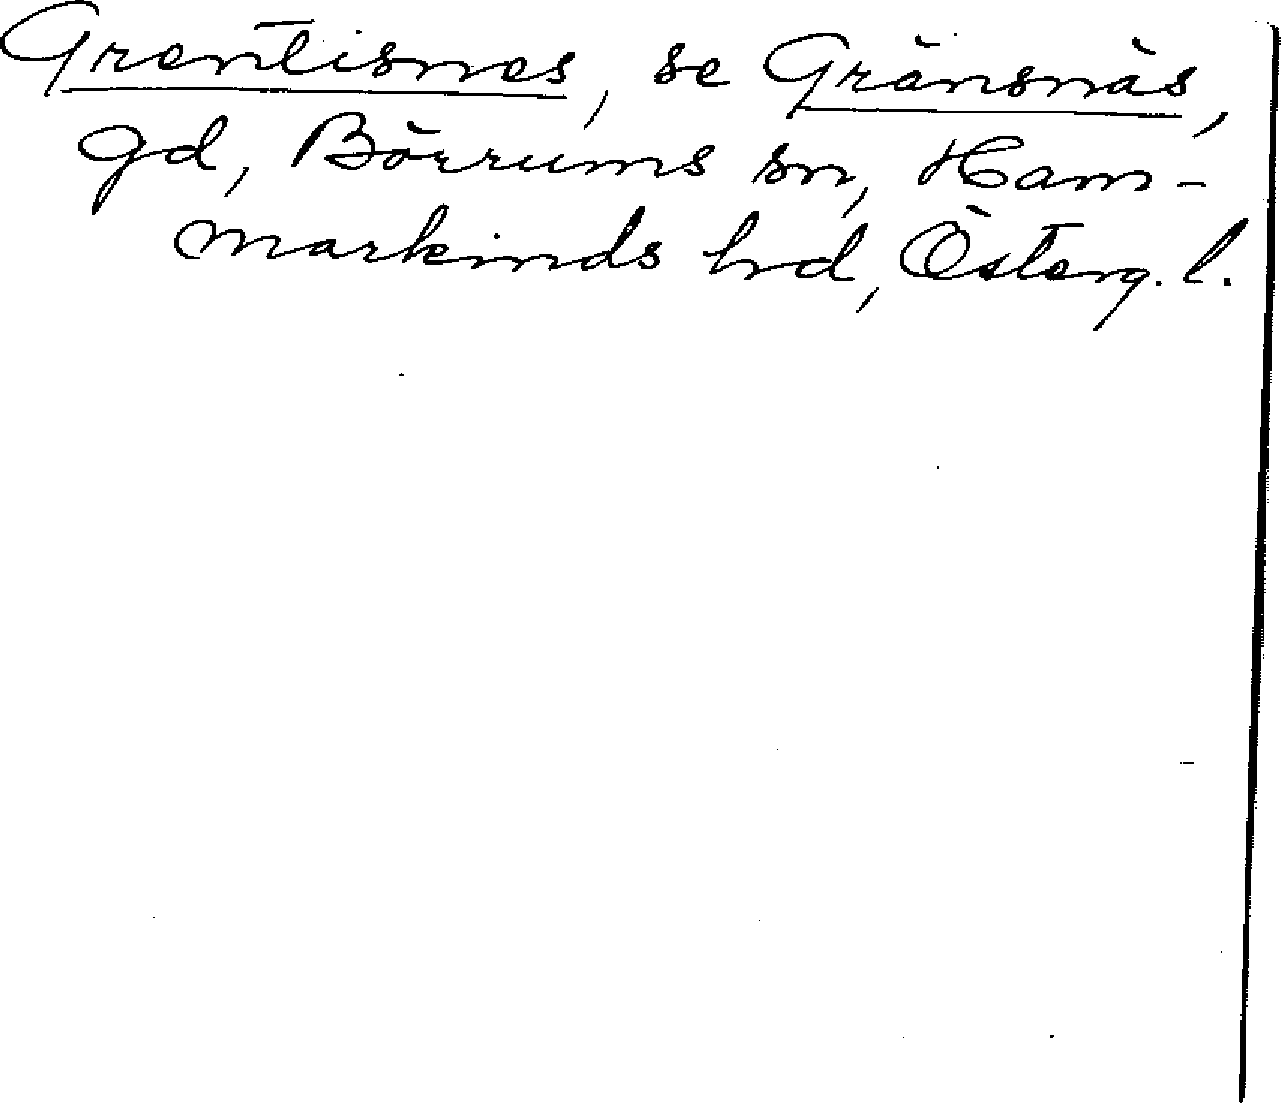 Grentisnes, se Gränsnäs,
gd, Börrums sn, Ham-
markinds hd, Österg. l.